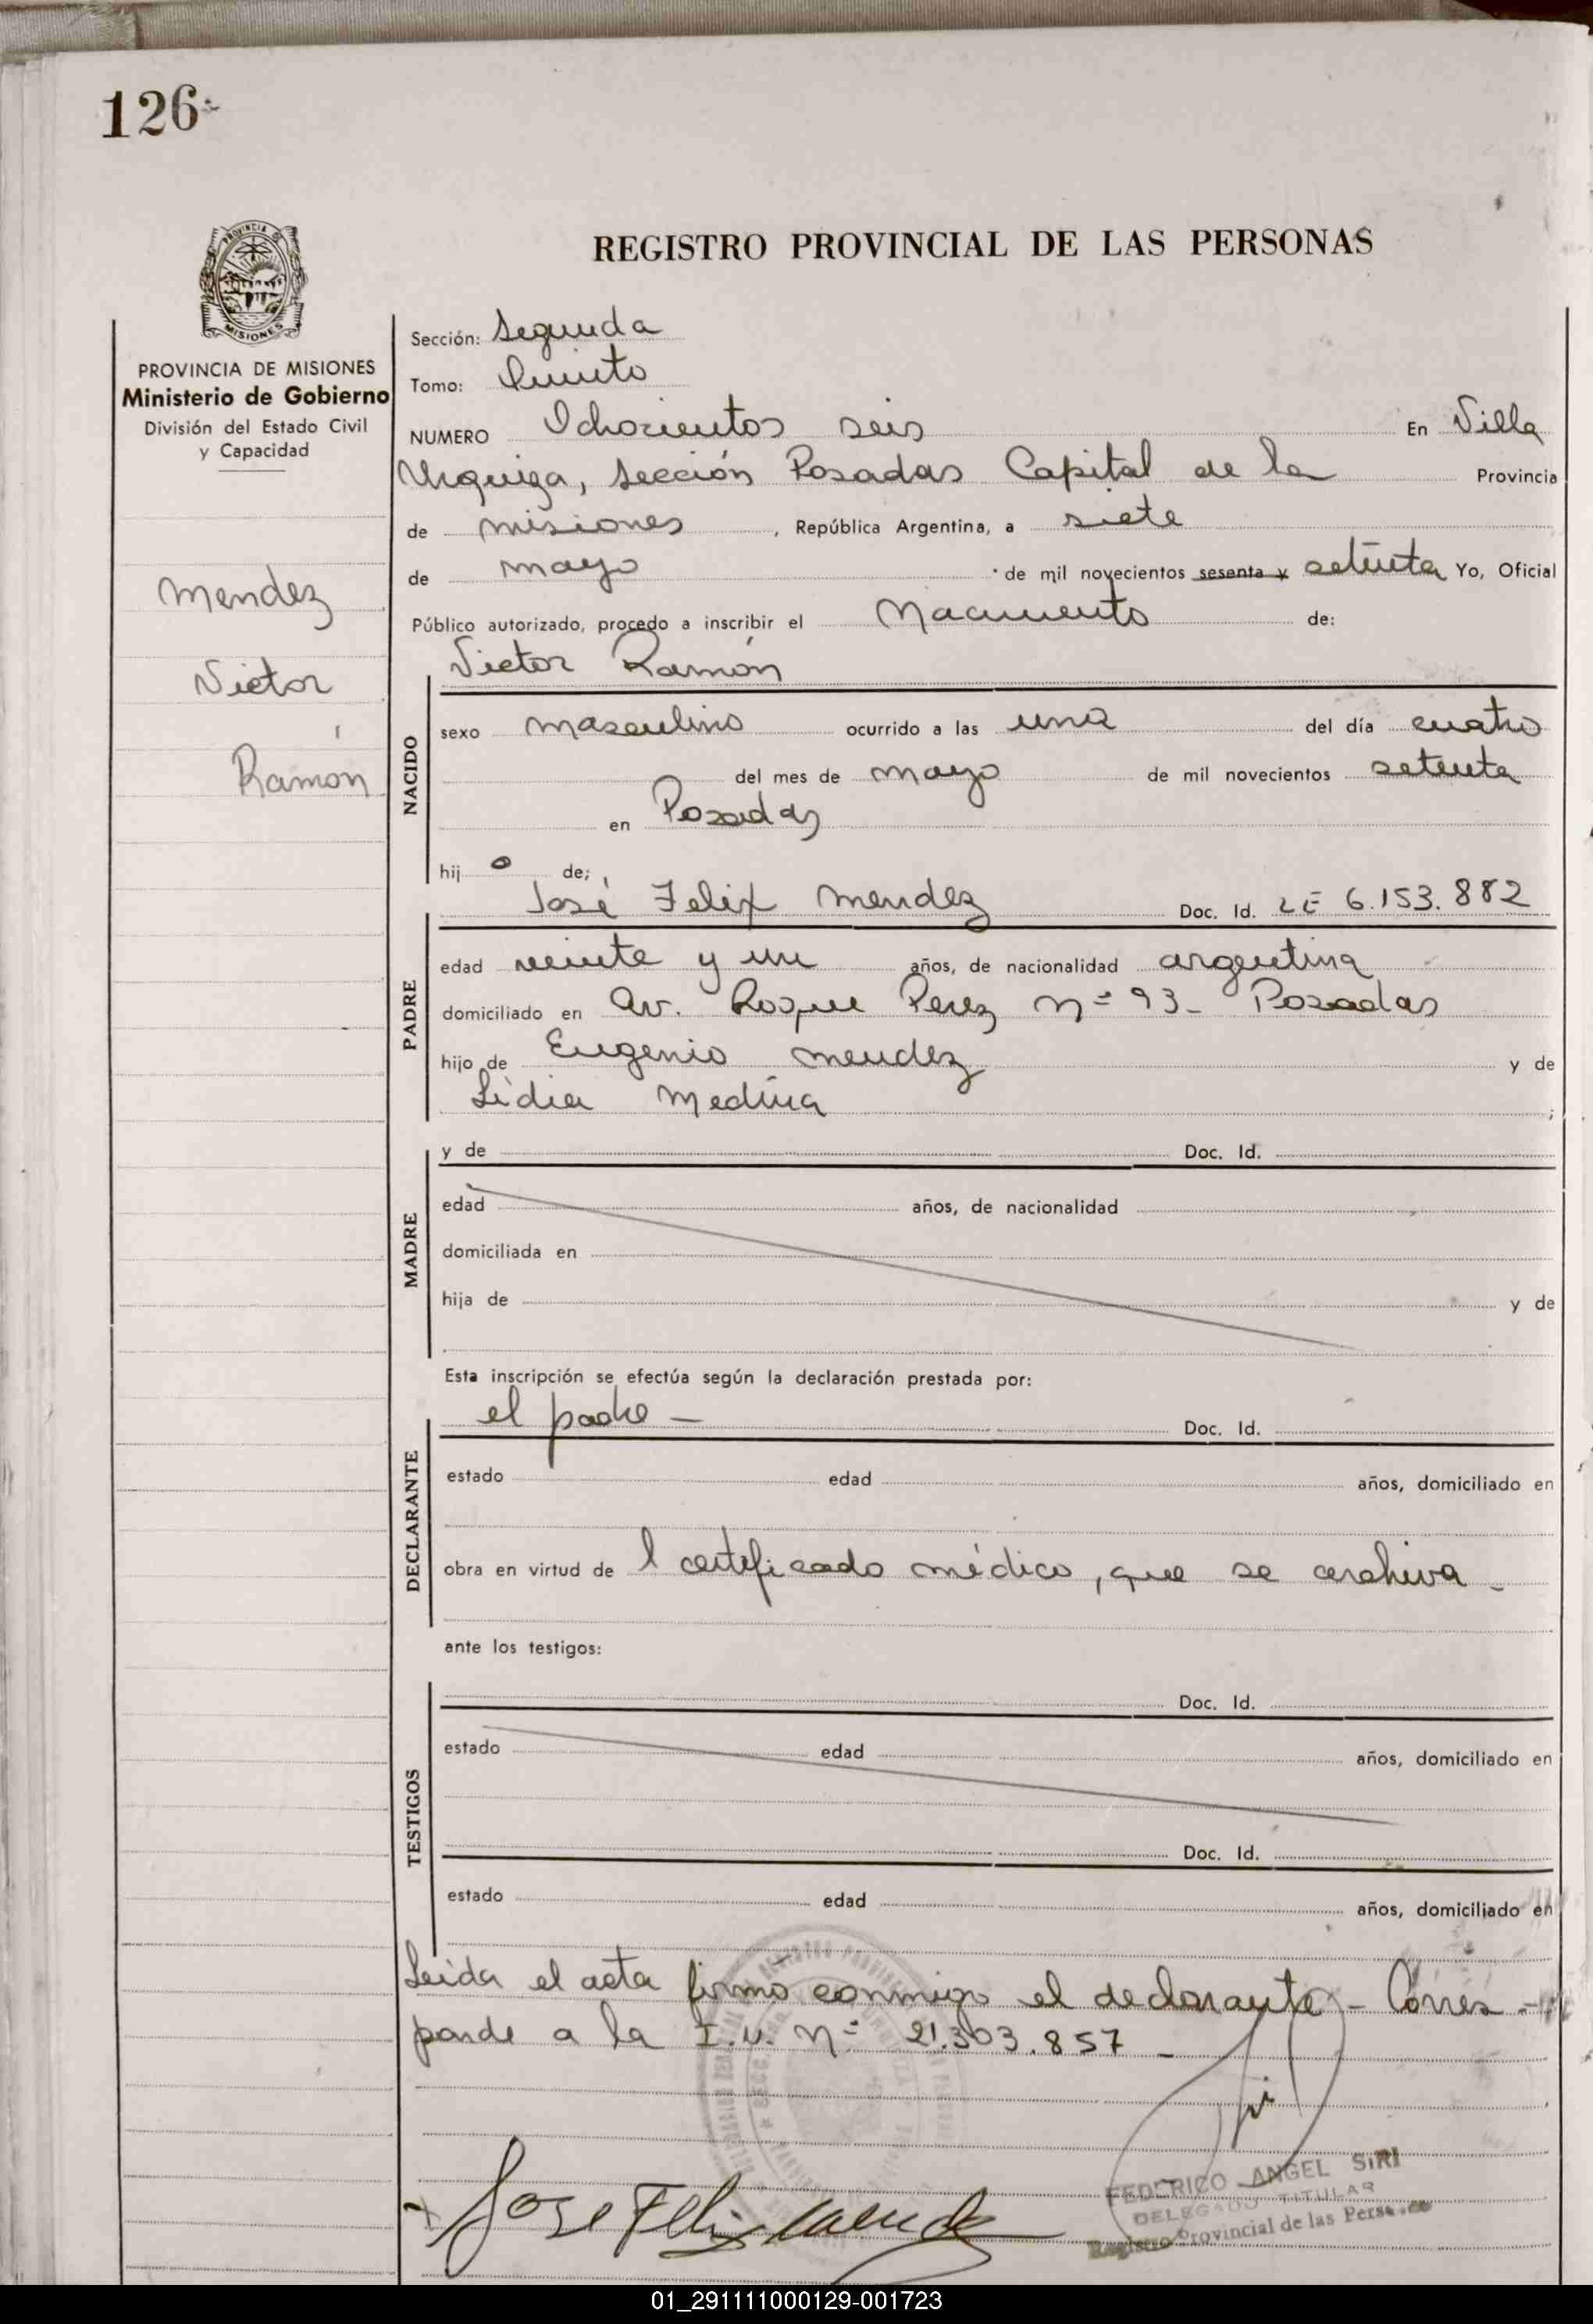 126
REGISTRO PROVINCIAL DE LAS PERSONAS
PROVINCIA
MISIONES
PROVINCIA DE MISIONES
Ministerio de Gobierno
División del Estado Civil
y Capacidad
Mendez
Victor
Ramón
Sección: Segunda
Tomo: Quinto
NUMERO Ochocientos seis En Villa
Urquiza, Sección Posadas Capital de la Provincia
de misiones, República Argentina, a siete
de mayo de mil novecientos sesenta y setenta Yo, Oficial
Público autorizado, procedo a inscribir el Nacimiento de:
Victor Ramón
NACIDO
sexo masculino ocurrido a las una del día cuatro
del mes de mayo de mil novecientos setenta
en Posadas
hij o de;
José Felix Mendez Doc. Id. LE 6.153.882
PADRE
edad veinte y un años, de nacionalidad argentina
domiciliado en Av. Roque Perez Nº 93- Posadas
hijo de Eugenio Mendez y de
Lidia Medina ;
MADRE
y de Doc. Id.
edad años, de nacionalidad
domiciliada en
hija de y de
Esta inscripción se efectúa según la declaración prestada por:
el padre - Doc. Id.
DECLARANTE
estado edad años, domiciliado en
obra en virtud de l certificado médico, que se archiva -
ante los testigos:
TESTIGOS
Doc. Id.
estado edad años, domiciliado en
Doc. Id.
estado edad años, domiciliado en
Leida el acta firmó conmigo el declarante - Corres -
ponde a la I.U. Nº 21.303.857 -
Jose Felix Mendez
FEDERICO ANGEL SIRI
DELEGADO TITULAR
Registro Provincial de las Personas
01_291111000129-001723